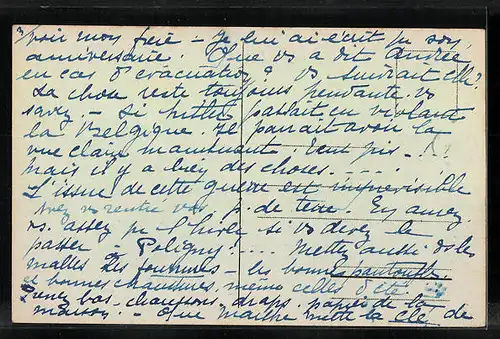 voir mon frère - Je lui ai écrit pr son
anniversaire. Que vs a dit Andrée
en cas d'évacuation? Vs suivrait elle?
La chose reste toujours pendante vs
savez - si hitler passait en violant
la Belgique. Il parait avoir la
vue claire maintenant. Tant pis ...
mais il y a bien des choses ....
L'issue de cette guerre est imprévisible
Avez vs rentré vos p. de terre. En avez
vs. assez pr l'hiver si vs devez le
passer - Poligny? ... Mettez aussi ds les
malles les fourrures - les bonnes pantoufles
et bonnes chaussures, même celles d'été.
prenez bas - chaussons - draps. papiers de la
maison. - Que maître mette la clé de